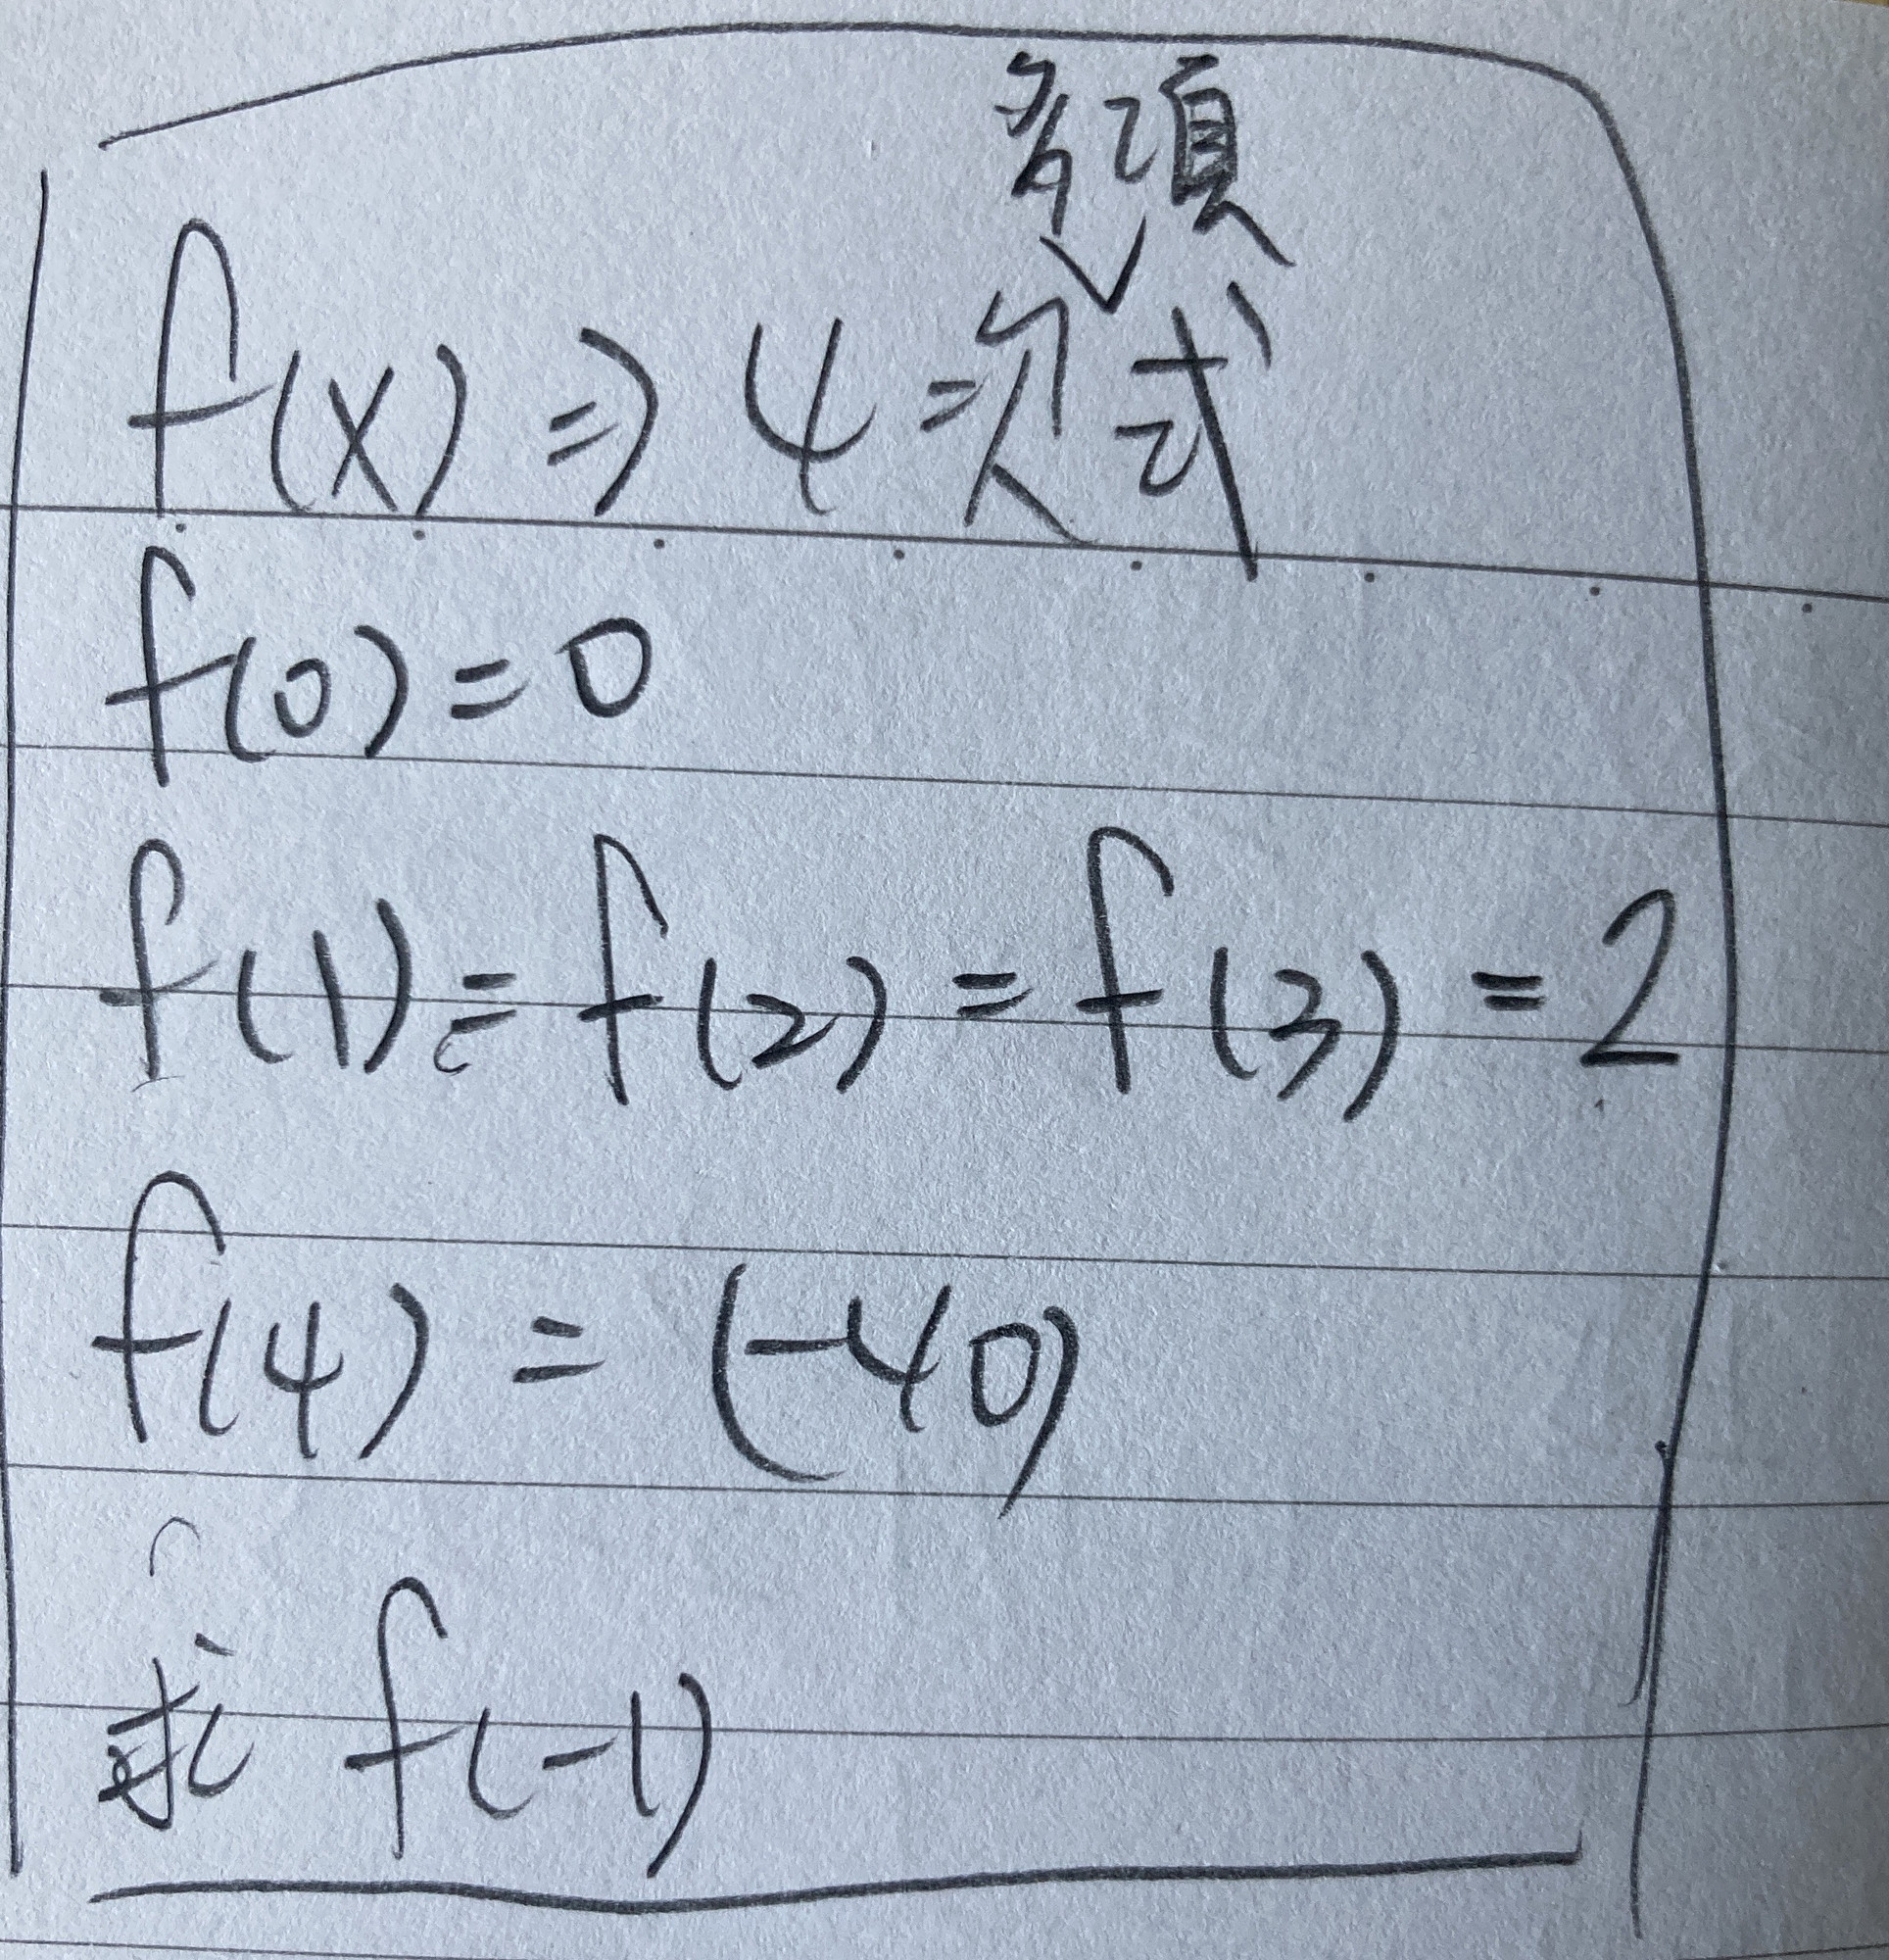 多項
f(x) ⇒ 4次式
f(0) = 0
f(1) = f(2) = f(3) = 2
f(4) = (-40)
求 f(-1)